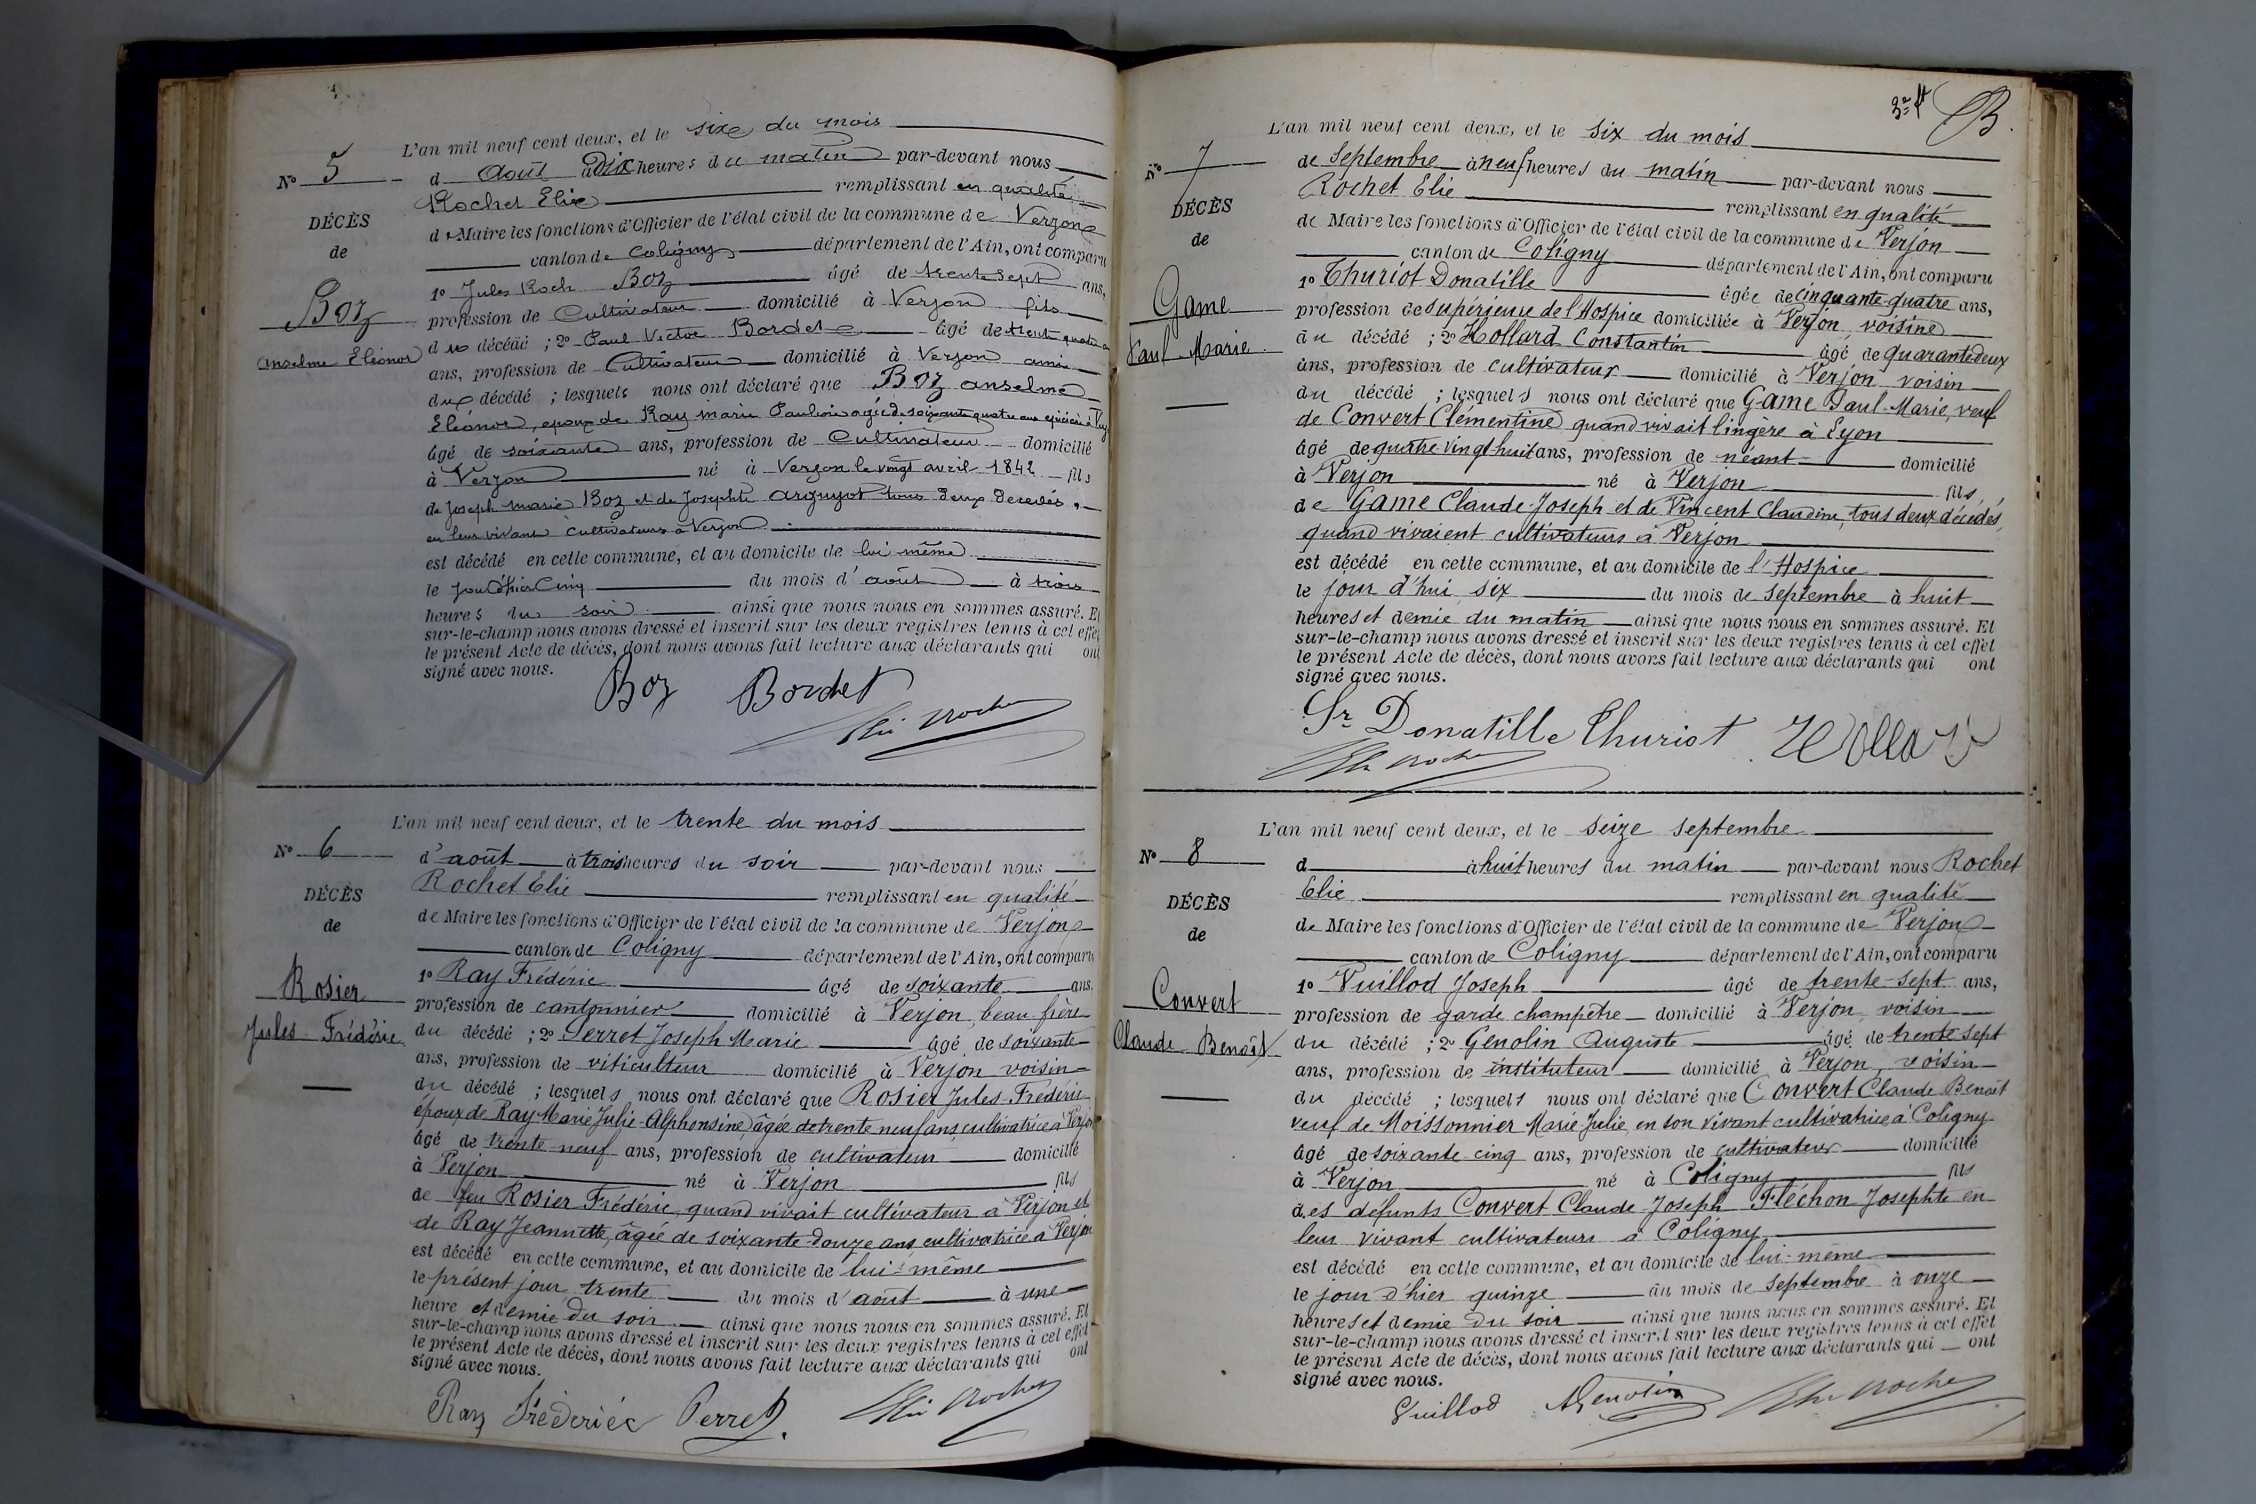 L'an mil neuf cent deux, et le six du mois
N° 5
d Août à dix heures du matin par-devant nous
Rochet Elie remplissant en qualité
DÉCÈS
de Maire les fonctions d'Officier de l'état civil de la commune de Verjon
de
canton de Coligny département de l'Ain, ont comparu
1° Jules Roch Boz âgé de trente sept ans,
Boz
profession de Cultivateur domicilié à Verjon fils
Anselme Eléonor
du décédé ; 2° Paul Victor Bordet âgé de trente quatre
ans, profession de Cultivateur domicilié à Verjon ami
du décédé ; lesquels nous ont déclaré que Boz Anselme
Eléonor, époux de Ray Marie Pauline agée de soixante quatre ans
âgé de soixante ans, profession de Cultivateur domicilié
à Verjon né à Verjon le vingt avril 1842 fils
de Joseph Marie Boz et de Josephte Arguyot tous deux décédés,
en leur vivant cultivateurs à Verjon
est décédé en cette commune, et au domicile de lui même
le jour d'hier Cinq du mois d'août à trois
heures du soir ainsi que nous nous en sommes assuré. Et
sur-le-champ nous avons dressé et inscrit sur les deux registres tenus à cet effet
le présent Acte de décès, dont nous avons fait lecture aux déclarants qui ont
signé avec nous.
Boz Bordet
Elie Rochet
L'an mil neuf cent deux, et le trente du mois
N° 6
d'août à trois heures du soir par-devant nous
Rochet Elie remplissant en qualité
DÉCÈS
de Maire les fonctions d'Officier de l'état civil de la commune de Verjon
de
canton de Coligny département de l'Ain, ont comparu
1° Ray Frédéric âgé de soixante ans,
Rosier
profession de cantonnier domicilié à Verjon, beau frère
Jules Frédéric
du décédé ; 2° Perret Joseph Marie âgé de soixante
ans, profession de viticulteur domicilié à Verjon voisin
du décédé ; lesquels nous ont déclaré que Rosier Jules Frédéric
époux de Ray Marie Julie Alphonsine, âgée de trente neuf ans, cultivatrice à Verjon
âgé de trente neuf ans, profession de cultivateur domicilié
à Verjon né à Verjon fils
de feu Rosier Frédéric, quand vivait cultivateur à Verjon et
de Ray Jeannette, âgée de soixante-douze ans cultivatrice à Verjon
est décédé en cette commune, et au domicile de lui-même
le présent jour trente du mois d'août à une
heure et demie du soir ainsi que nous nous en sommes assuré. Et
sur-le-champ nous avons dressé et inscrit sur les deux registres tenus à cet effet
le présent Acte de décès, dont nous avons fait lecture aux déclarants qui ont
signé avec nous.
Ray Fréderiec Perret Elie Rochet
L'an mil neuf cent deux, et le six du mois
N° 7
de Septembre à neuf heures du matin par-devant nous
Rochet Elie remplissant en qualité
DÉCÈS
de Maire les fonctions d'Officier de l'état civil de la commune de Verjon
de
canton de Coligny département de l'Ain, ont comparu
1° Thuriot Donatille âgée de cinquante-quatre ans,
Game
profession de supérieure de l'Hospice domiciliée à Verjon, voisine
Paul Marie
du décédé ; 2° Hollard Constantin âgé de quarante deux
ans, profession de cultivateur domicilié à Verjon voisin
du décédé ; lesquels nous ont déclaré que Game Paul-Marie, veuf
de Convert Clémentine quand vivait lingère à Lyon
âgé de quatre vingt huit ans, profession de néant domicilié
à Verjon né à Verjon fils
de Game Claude-Joseph et de Vincent Claudine, tous deux décédés,
quand vivaient cultivateurs à Verjon
est décédé en cette commune, et au domicile de l'Hospice
le jour d'hui six du mois de septembre à huit
heures et demie du matin ainsi que nous nous en sommes assuré. Et
sur-le-champ nous avons dressé et inscrit sur les deux registres tenus à cet effet
le présent Acte de décès, dont nous avons fait lecture aux déclarants qui ont
signé avec nous.
Sr Donatille Thuriot Hollard
Elie Rochet
L'an mil neuf cent deux, et le seize septembre
N° 8
d à huit heures du matin par-devant nous Rochet
Elie remplissant en qualité
DÉCÈS
de Maire les fonctions d'Officier de l'état civil de la commune de Verjon
de
canton de Coligny département de l'Ain, ont comparu
1° Vuillod Joseph âgé de trente-sept ans,
Convert
profession de garde champêtre domicilié à Verjon, voisin
Claude Benoît
du décédé ; 2° Genolin Auguste âgé de trente sept
ans, profession de instituteur domicilié à Verjon, voisin
du décédé ; lesquels nous ont déclaré que Convert Claude Benoît
veuf de Moissonnier Marie Julie, en son vivant cultivatrice à Coligny
âgé de soixante cinq ans, profession de cultivateur domicilié
à Verjon né à Coligny fils
des défunts Convert Claude Joseph Fléchon Josephte en
leur vivant cultivateurs à Coligny
est décédé en cette commune, et au domicile de lui-même
le jour d'hier quinze du mois de septembre à onze
heures et demie du soir ainsi que nous nous en sommes assuré. Et
sur-le-champ nous avons dressé et inscrit sur les deux registres tenus à cet effet
le présent Acte de décès, dont nous avons fait lecture aux déclarants qui ont
signé avec nous.
Vuillod AGenolin Elie Rochet